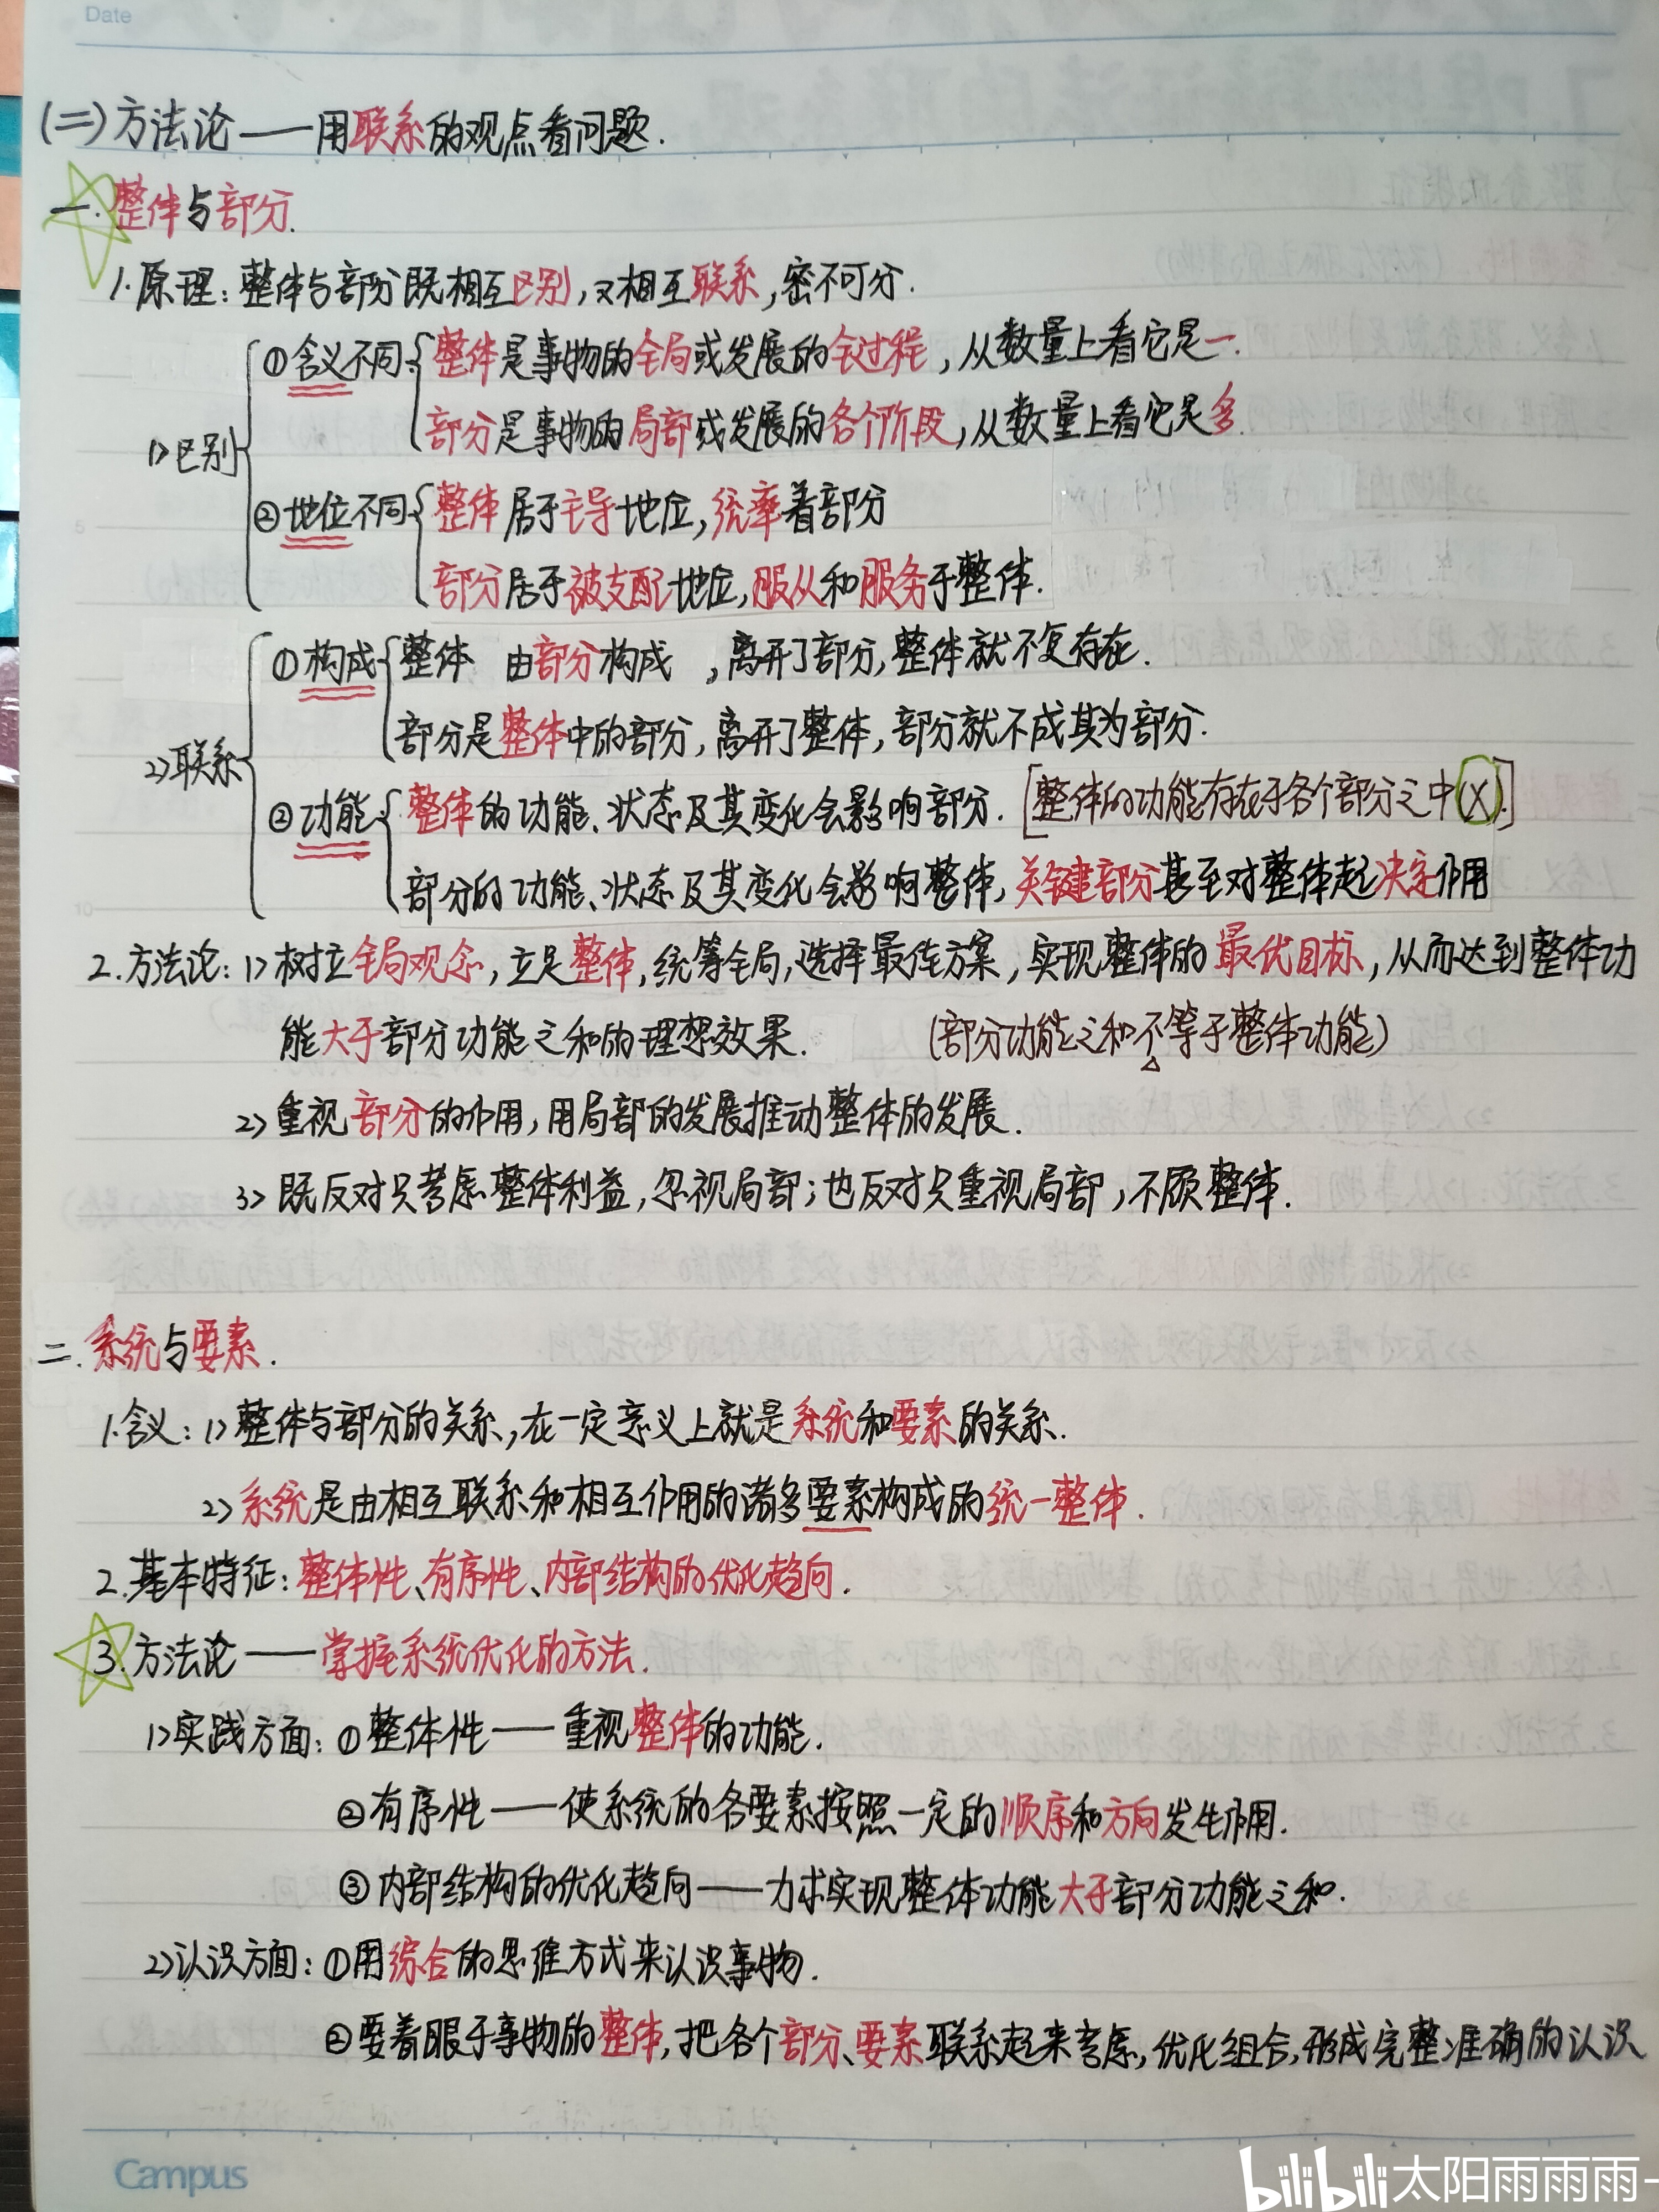 Date
(二)方法论——用联系的观点看问题.
一.整体与部分.
1.原理：整体与部分既相互区别,又相互联系,密不可分.
1>区别
①含义不同
整体是事物的全局或发展的全过程，从数量上看它是一.
部分是事物的局部或发展的各个阶段,从数量上看它是多.
②地位不同
整体居于主导地位,统率着部分
部分居于被支配地位,服从和服务于整体.
2>联系
①构成
整体 由部分构成 ,离开了部分,整体就不复存在.
部分是整体中的部分,离开了整体,部分就不成其为部分.
②功能
整体的功能、状态及其变化会影响部分. [整体的功能存在于各个部分之中(X).]
部分的功能、状态及其变化会影响整体,关键部分甚至对整体起决定作用
2.方法论：1>树立全局观念,立足整体,统筹全局,选择最佳方案,实现整体的最优目标,从而达到整体功
能大于部分功能之和的理想效果. (部分功能之和不等于整体功能)
2>重视部分的作用,用局部的发展推动整体的发展.
3>既反对只考虑整体利益,忽视局部;也反对只重视局部,不顾整体.
二.系统与要素.
1.含义：1>整体与部分的关系,在一定意义上就是系统和要素的关系.
2>系统是由相互联系和相互作用的诸多要素构成的统一整体.
2.基本特征：整体性、有序性、内部结构的优化趋向.
3.方法论——掌握系统优化的方法.
1>实践方面：①整体性——重视整体的功能.
②有序性——使系统的各要素按照一定的顺序和方向发生作用.
③内部结构的优化趋向——力求实现整体功能大于部分功能之和.
2>认识方面：①用综合的思维方式来认识事物.
②要着眼于事物的整体,把各个部分、要素联系起来考虑,优化组合,形成完整准确的认识
5
10
Campus
bilibili 太阳雨雨雨-